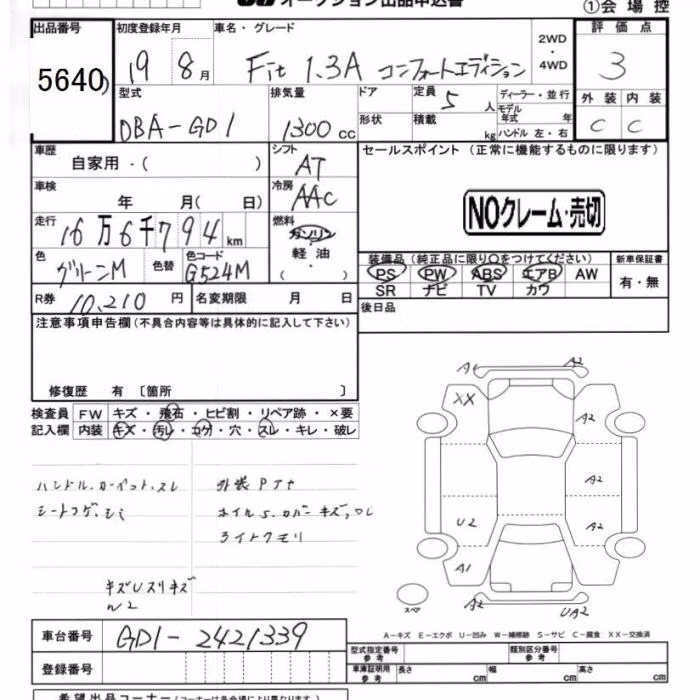 オークション出品申込書
①会場控
出品番号
5640
初度登録年月
19 8月
車名・グレード
Fit 1.3A コンフォートエディション
2WD・4WD
評価点
3
型式
DBA-GD1
排気量
1300cc
ドア
形状
定員 5人
積載 kg
ディーラー・並行
モデル年式 年
ハンドル 左・右
外装 内装
C C
車歴
自家用・( )
シフト
AT
セールスポイント (正常に機能するものに限ります)
車検
年 月( 日)
冷房
AAC
NOクレーム・売切
走行
16万6千794km
燃料
ガソリン
軽油
( ・ )
色
グリーンM
色替
色コード
G524M
装備品 (純正品に限り○をつけてください)
PS PW ABS エアB AW
SR ナビ TV カワ
新車保証書
有・無
R券 10,210円
名変期限 月 日
後日品
注意事項申告欄 (不具合内容等は具体的に記入して下さい)
修復歴 有 〔箇所 〕
検査員記入欄
FW キズ・飛石・ヒビ割・リペア跡・×要
内装 キズ・汚レ・コゲ・穴・スレ・キレ・破レ
ハンドル.カーペット.スレ
シートコゲ.シミ
外装Pアナ
ライトクモリ
キズUスリキズ
W2
A1 A2
XX
A2
A2
U2 A2
A1
A2 UA2
スペア
A-キズ E-エクボ U-凹み W-補修跡 S-サビ C-腐食 XX-交換済
車台番号
GD1-2421339
登録番号
型式指定番号 参考
類別区分番号 参考
車庫証明用 参考
長さ cm 幅 cm 高さ cm
希望出品コーナー (コーナーは各会場により異なります。)